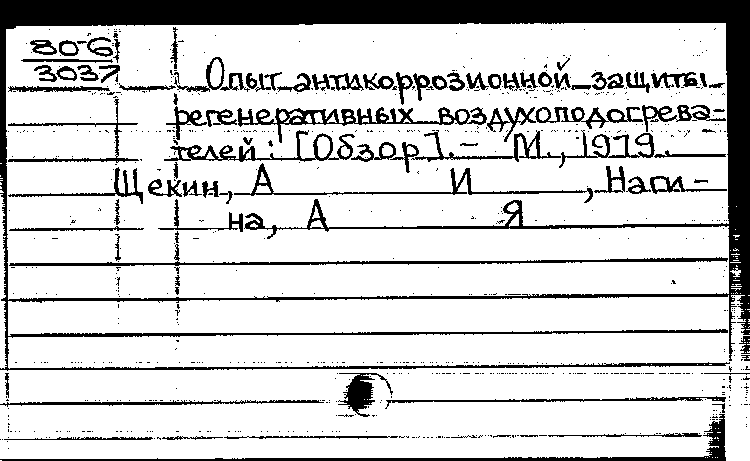 80-6
3037
Опыт антикоррозионной защиты
регенеративных воздухоподогрева-
телей: [Обзор]. - М., 1979.
Щекин, А И , Наги-
на, А Я